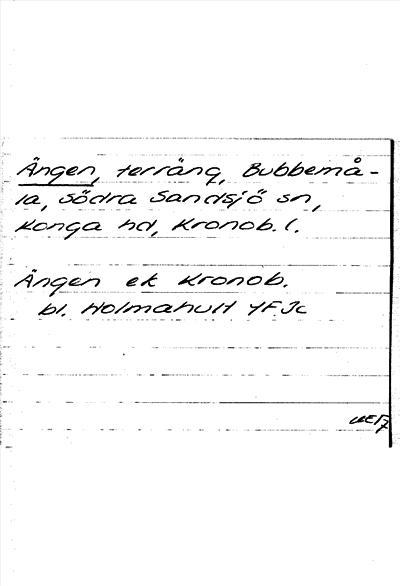 Ängen, terräng, Bubbemå-
la, Södra Sandsjö sn,
Konga hd, Kronob. l.
Ängen ek Kronob.
bl. Holmahult 4F Jc